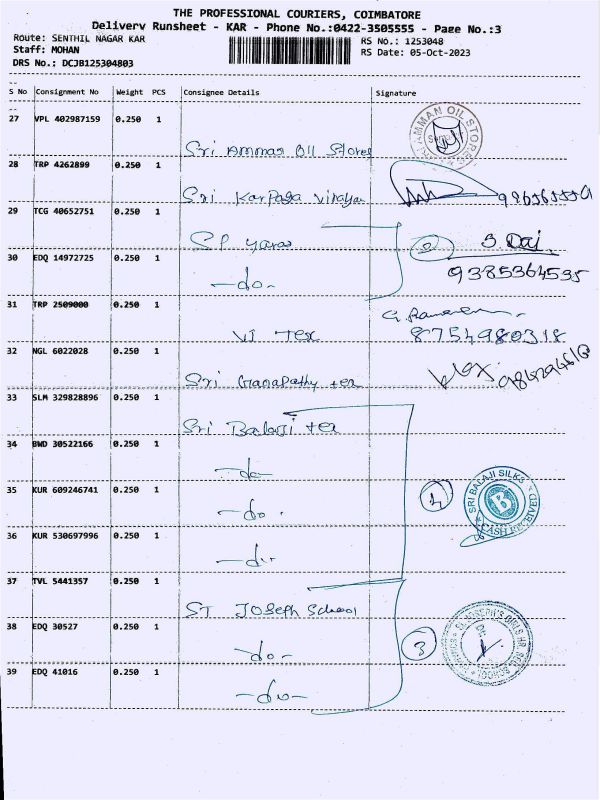 THE PROFESSIONAL COURIERS, COIMBATORE
Delivery Runsheet - KAR - Phone No.:0422-3505555 - Page No.:3
Route: SENTHIL NAGAR KAR
RS No.: 1253048
Staff: MOHAN
RS Date: 05-Oct-2023
DRS No.: DCJB125304803
S No Consignment No Weight PCS Consignee Details Signature
27 VPL 402987159 0.250 1
Sri Amman Oil Stores
AMMAN OIL STORES
28 TRP 4262899 0.250 1
Sri Karpaga Vinayaga
29 TCG 40652751 0.250 1
SP yarns
2
30 EDQ 14972725 0.250 1
-do-
9385364535
31 TRP 2509000 0.250 1
VJ Tex
8754980318
32 NGL 6022028 0.250 1
Sri Ganapathy tex
33 SLM 329828896 0.250 1
Sri Balaji tex
34 BWD 30522166 0.250 1
-do-
35 KUR 609246741 0.250 1
-do-
4
SRI BALAJI SILKS
CASH RECEIVED
36 KUR 530697996 0.250 1
-do-
37 TVL 5441357 0.250 1
ST Joseph School
38 EDQ 30527 0.250 1
-do-
3
ST. JOSEPH'S GIRLS HR. SEC. SCHOOL
39 EDQ 41016 0.250 1
-do-